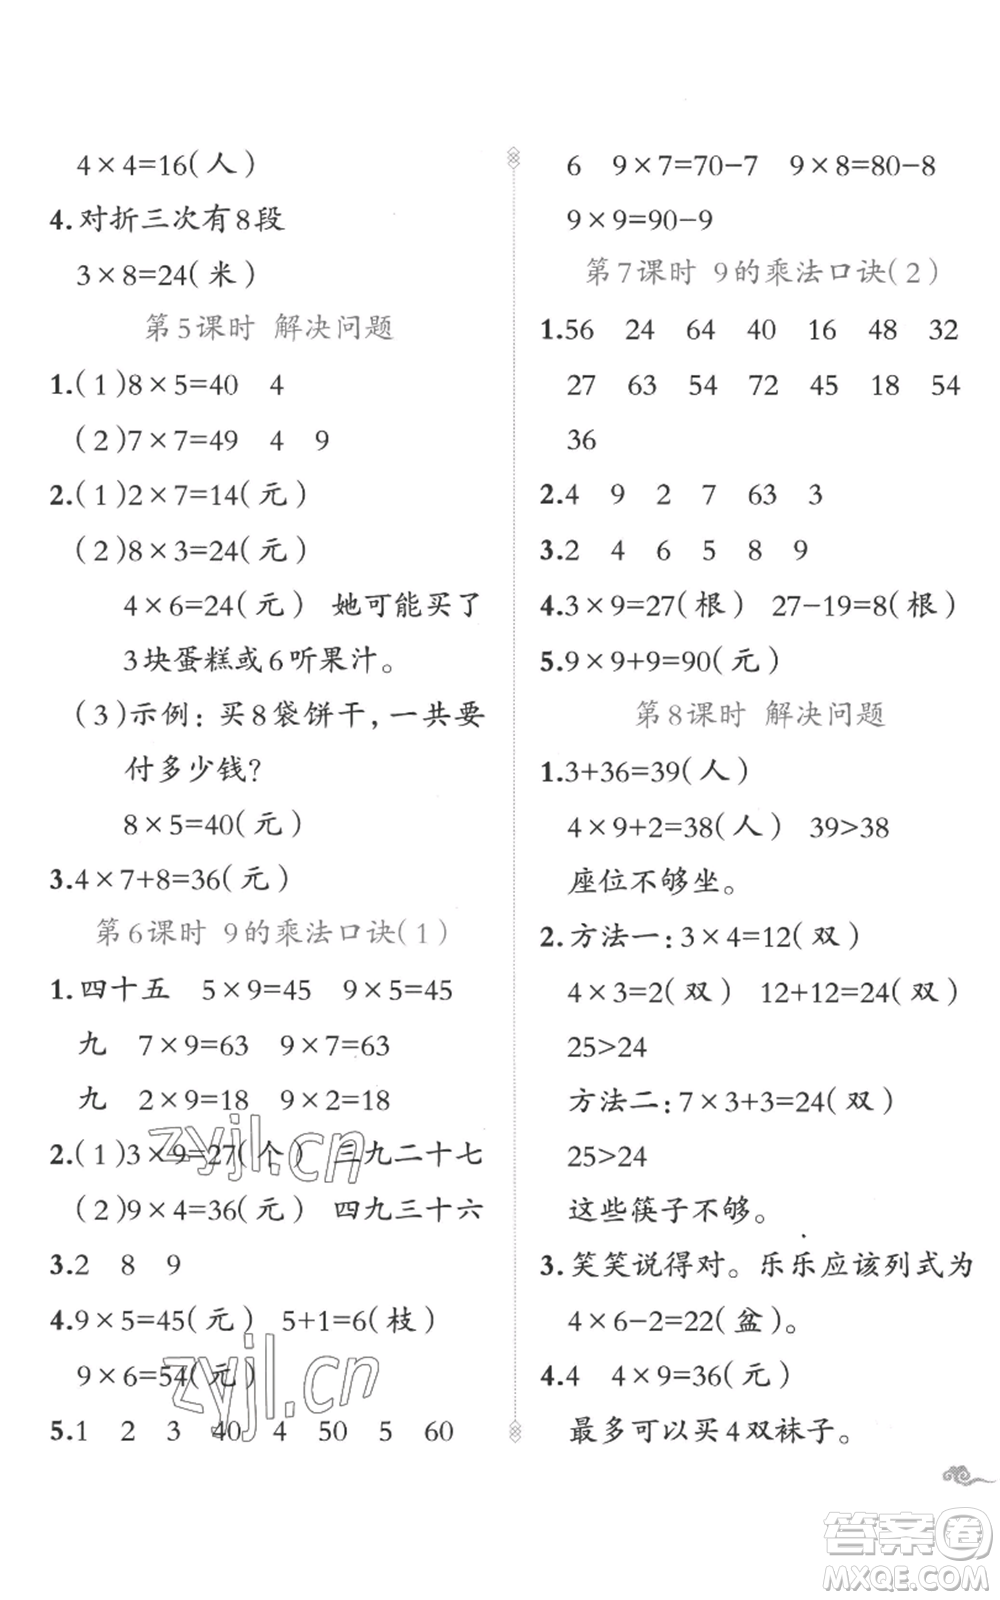 4×4=16(人)
4.对折三次有8段
3×8=24(米)
第5课时 解决问题
1.(1)8×5=40 4
(2)7×7=49 4 9
2.(1)2×7=14(元)
(2)8×3=24(元)
4×6=24(元) 她可能买了
3块蛋糕或6听果汁。
(3)示例:买8袋饼干,一共要
付多少钱?
8×5=40(元)
3.4×7+8=36(元)
第6课时 9的乘法口诀(1)
1.四十五 5×9=45 9×5=45
九 7×9=63 9×7=63
九 2×9=18 9×2=18
2.(1)3×9=27(个) 三九二十七
(2)9×4=36(元) 四九三十六
3.2 8 9
4.9×5=45(元) 5+1=6(枝)
9×6=54(元)
5.1 2 3 40 4 50 5 60
6 9×7=70-7 9×8=80-8
9×9=90-9
第7课时 9的乘法口诀(2)
1.56 24 64 40 16 48 32
27 63 54 72 45 18 54
36
2.4 9 2 7 63 3
3.2 4 6 5 8 9
4.3×9=27(根) 27-19=8(根)
5.9×9+9=90(元)
第8课时 解决问题
1.3+36=39(人)
4×9+2=38(人) 39>38
座位不够坐。
2.方法一:3×4=12(双)
4×3=2(双) 12+12=24(双)
25>24
方法二:7×3+3=24(双)
25>24
这些筷子不够。
3.笑笑说得对。乐乐应该列式为
4×6-2=22(盆)。
4.4 4×9=36(元)
最多可以买4双袜子。
zyjl.cn
zyjl.cn
答案卷
MXQE.COM